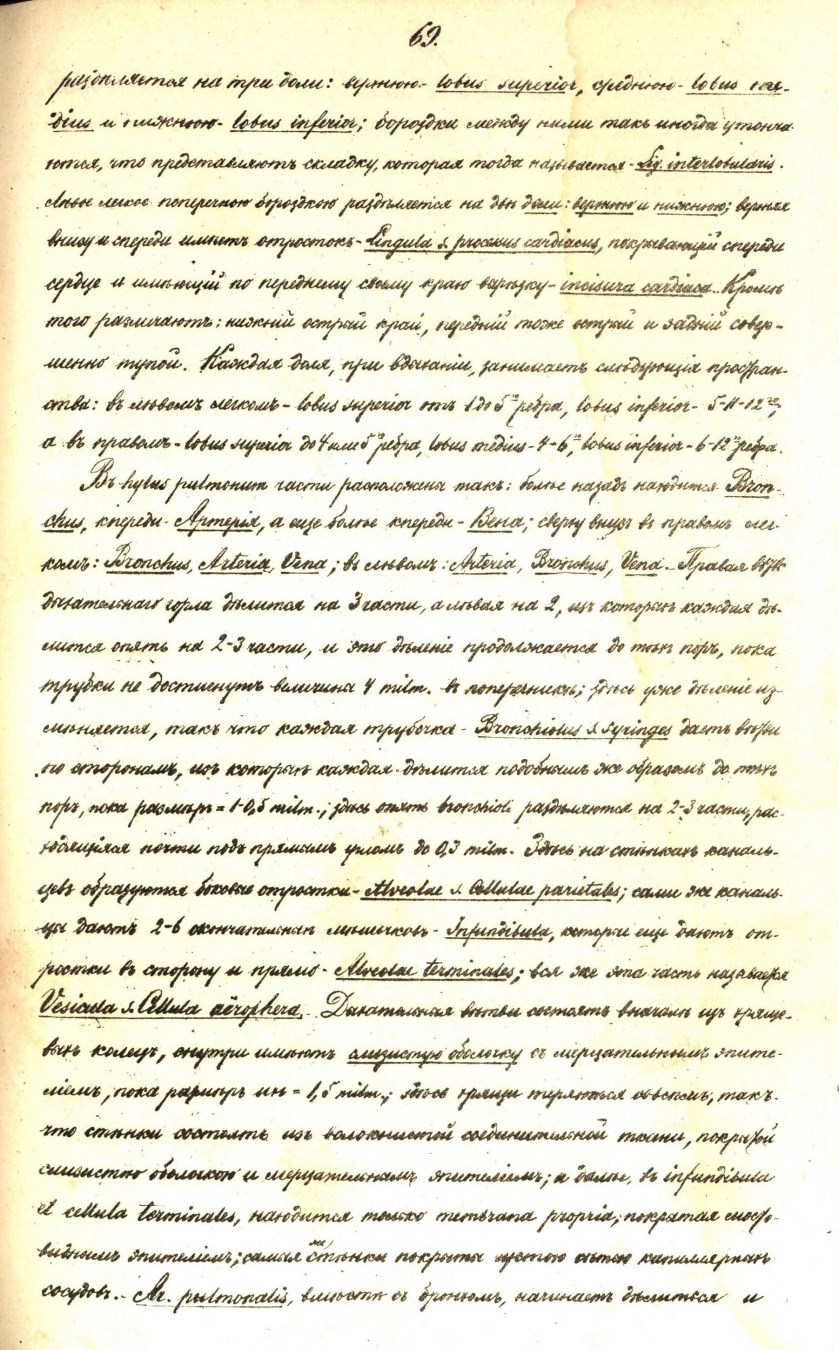 69.
раздѣляется на три доли: верхнюю - lobus superior, среднюю - lobus me-
dius и нижнюю - lobus inferior; бороздки между ними такъ иногда утонча-
ются, что представляютъ складку, которая тогда называется - Lig. interlobularis.
Лѣвое легкое поперечною бороздкою раздѣляется на двѣ доли: верхнюю и нижнюю; верхняя
внизу и спереди имѣетъ отростокъ - Lingula s. processus cardiacus, покрывающій спереди
сердце и имѣющій по переднему своему краю вырѣзку - incisura cardiaca. Кромѣ
того различаютъ: нижній острый край, передній тоже острый и задній совер-
шенно тупой. Каждая доля, при вдыханіи, занимаетъ слѣдующія простран-
ства: въ лѣвомъ легкомъ - lobus superior отъ 1 до 5го ребра, lobus inferior - 5-11-12го,
а въ правомъ - lobus superior до 4 или 5го ребра, lobus medius - 4-6го, lobus inferior - 6-12го ребра.
Въ hylus pulmonum части расположены такъ: болѣе назадъ находится Bron-
chus, кпереди - Артерія, а еще болѣе кпереди - Вена; сверху внизъ въ правомъ лег-
комъ: Bronchus, Arteria, Vena; въ лѣвомъ: Arteria, Bronchus, Vena. - Правая вѣтвь
дыхательнаго горла дѣлится на 3 части, а лѣвая на 2, изъ которыхъ каждая дѣ-
лится опять на 2-3 части, и это дѣленіе продолжается до тѣхъ поръ, пока
трубки не достигнутъ величины 4 milm. въ поперечникѣ; здѣсь уже дѣленіе из-
мѣняется, такъ что каждая трубочка - Bronchiolus s. Syringes даетъ вѣтви
по сторонамъ, изъ которыхъ каждая дѣлится подобнымъ же образомъ до тѣхъ
поръ, пока размѣръ = 1-0,5 milm.; здѣсь опять bronchioli раздѣляются на 2-3 части, рас-
ходящіяся почти подъ прямымъ угломъ до 0,3 milm. Здѣсь на стѣнкахъ каналь-
цевъ образуются боковые отростки - Alveolae s. Cellulae parietales; сами же каналь-
цы даютъ 2-6 окончательныхъ мѣшечковъ - Infundibula, которые еще даютъ от-
ростки въ сторону и прямо - Alveolae terminales; вся же эта часть называется
Vesicula s. Cellula aërophera. Дыхательныя вѣтви состоятъ вначалѣ изъ хряще-
выхъ колецъ, снутри имѣютъ слизистую оболочку съ мерцательнымъ эпите-
ліемъ, пока размѣръ ихъ = 1,5 milm.; здѣсь хрящи теряются совсѣмъ, такъ
что стѣнки состоятъ изъ волокнистой соединительной ткани, покрытой
слизистою оболочкою и мерцательнымъ эпителіемъ; а далѣе, въ infundibula
et cellula terminales, находится только membrana propria, покрытая
виднымъ эпителіемъ; самыя стѣнки покрыты густою сѣтью капиллярныхъ
сосудовъ. - Ar. pulmonalis, вмѣстѣ съ бронхомъ, начинаетъ дѣлиться и